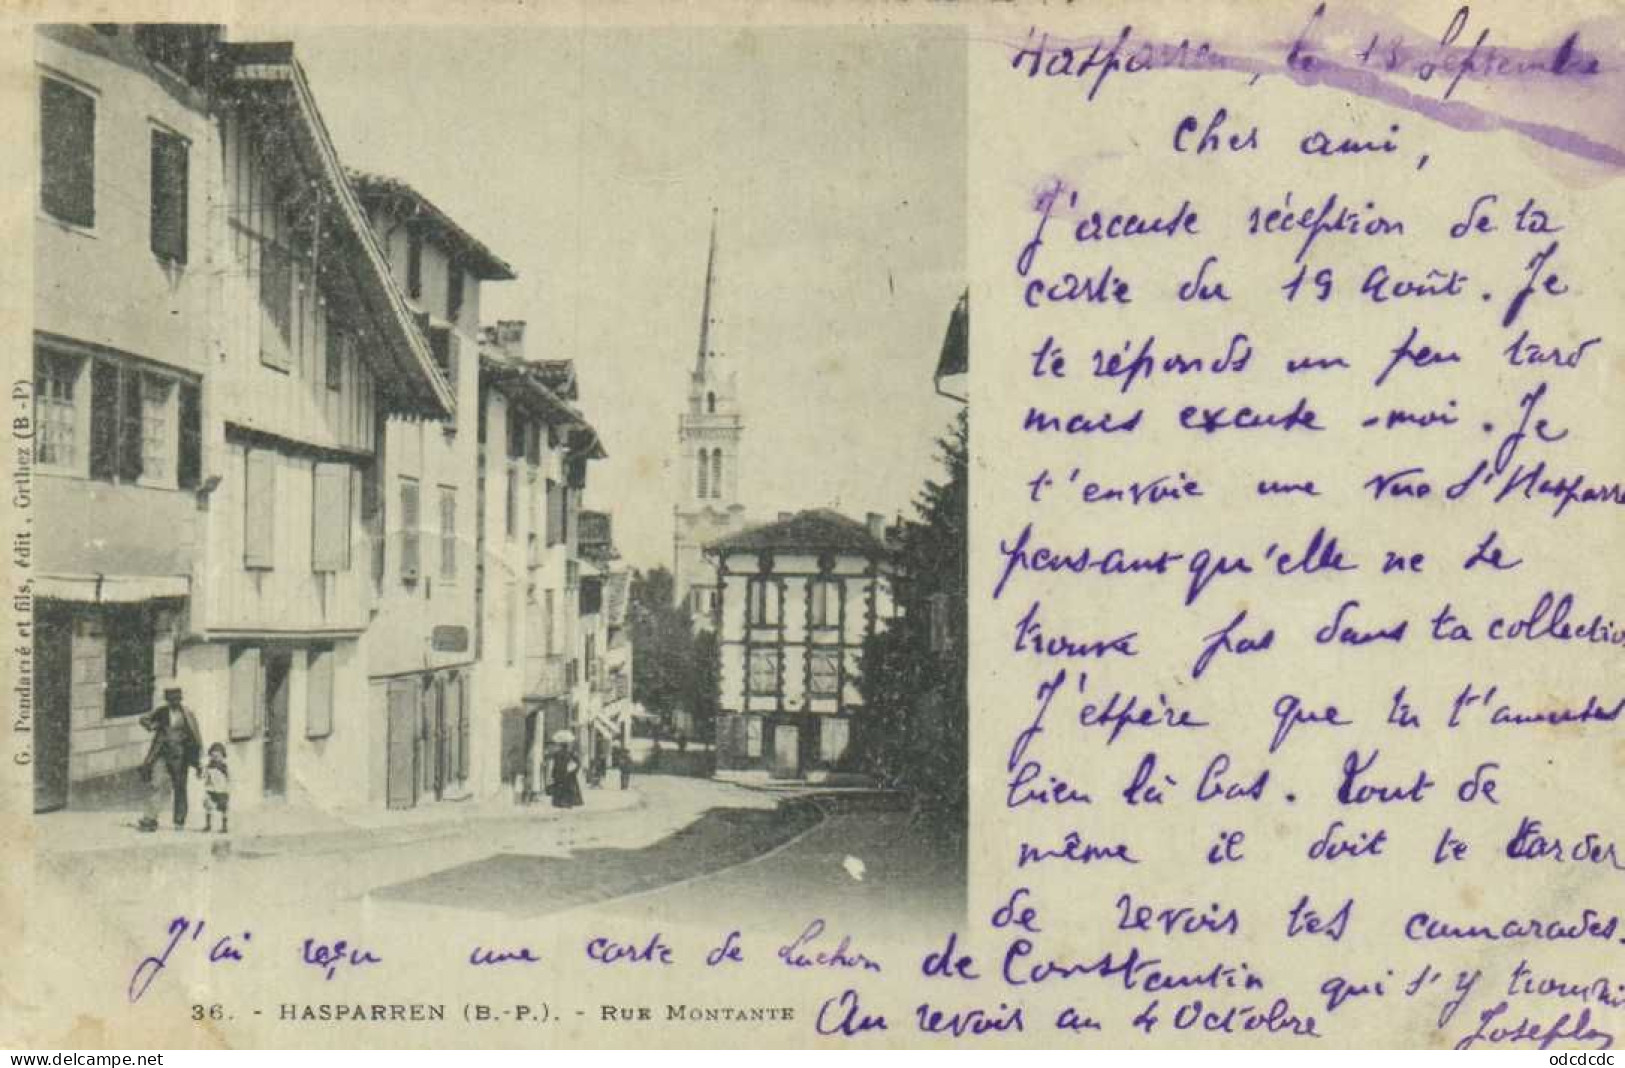 Hasparren, le 13 Septembre
Cher ami,
J'accuse réception de ta
carte du 19 Août. Je
te réponds un peu tard
mais excuse-moi. Je
t'envoie une vue d'Hasparre
pensant qu'elle ne se
trouve pas dans ta collectio
J'espère que tu t'amuses
bien là bas. Tout de
même il doit te tarder
de revoir tes camarades.
J'ai reçu une carte de Luchon de Constantin qui s'y trouv
Au revoir au 4 Octobre
36. - HASPARREN (B.-P.). - RUE MONTANTE
G. Pondarré et fils, édit. Orthez (B-P)
www.delcampe.net
odcdcdc